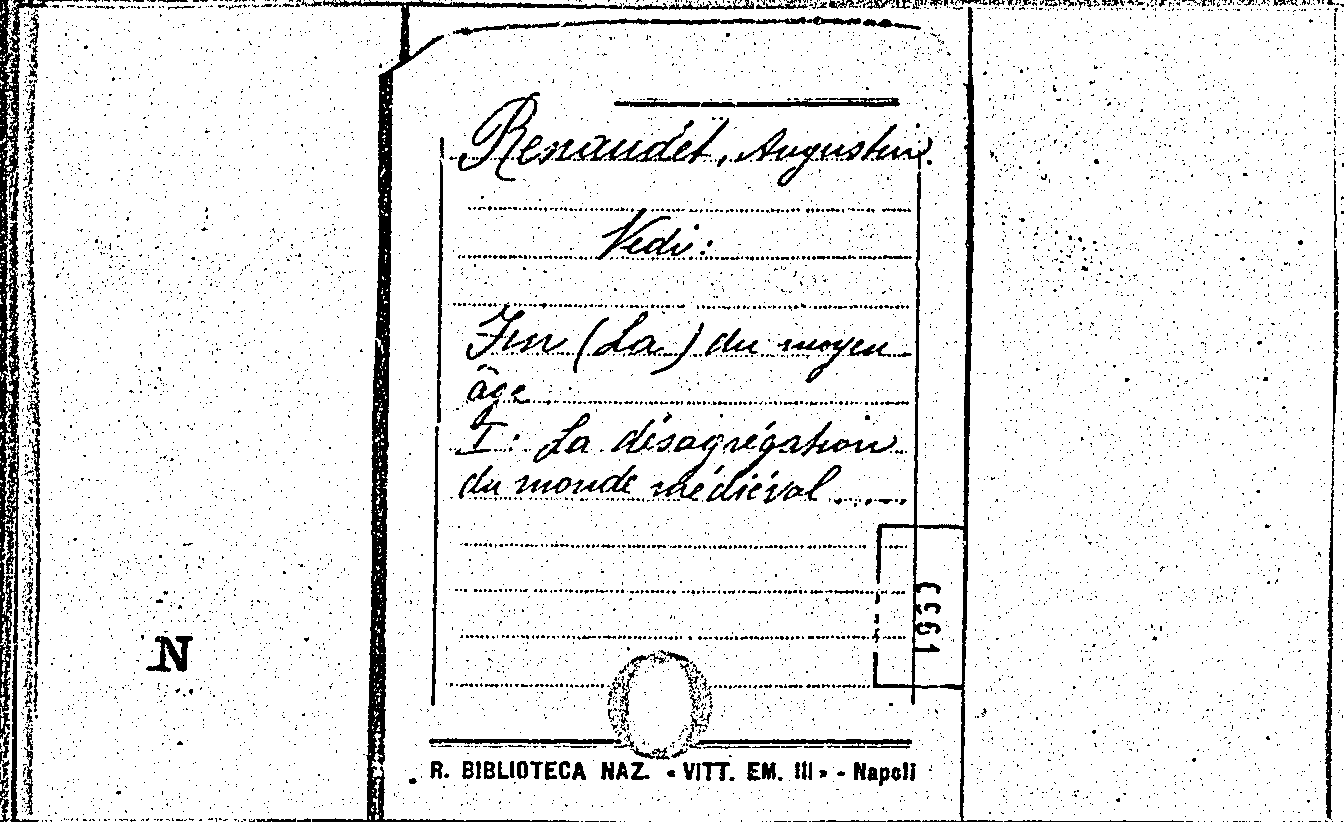 Renaudet, Augustin.
Vedi:
Fin (La) du moyen
âge
I: La désagrégation
du monde médiéval....
1993
N
R. BIBLIOTECA NAZ. « VITT. EM. III » - Napoli